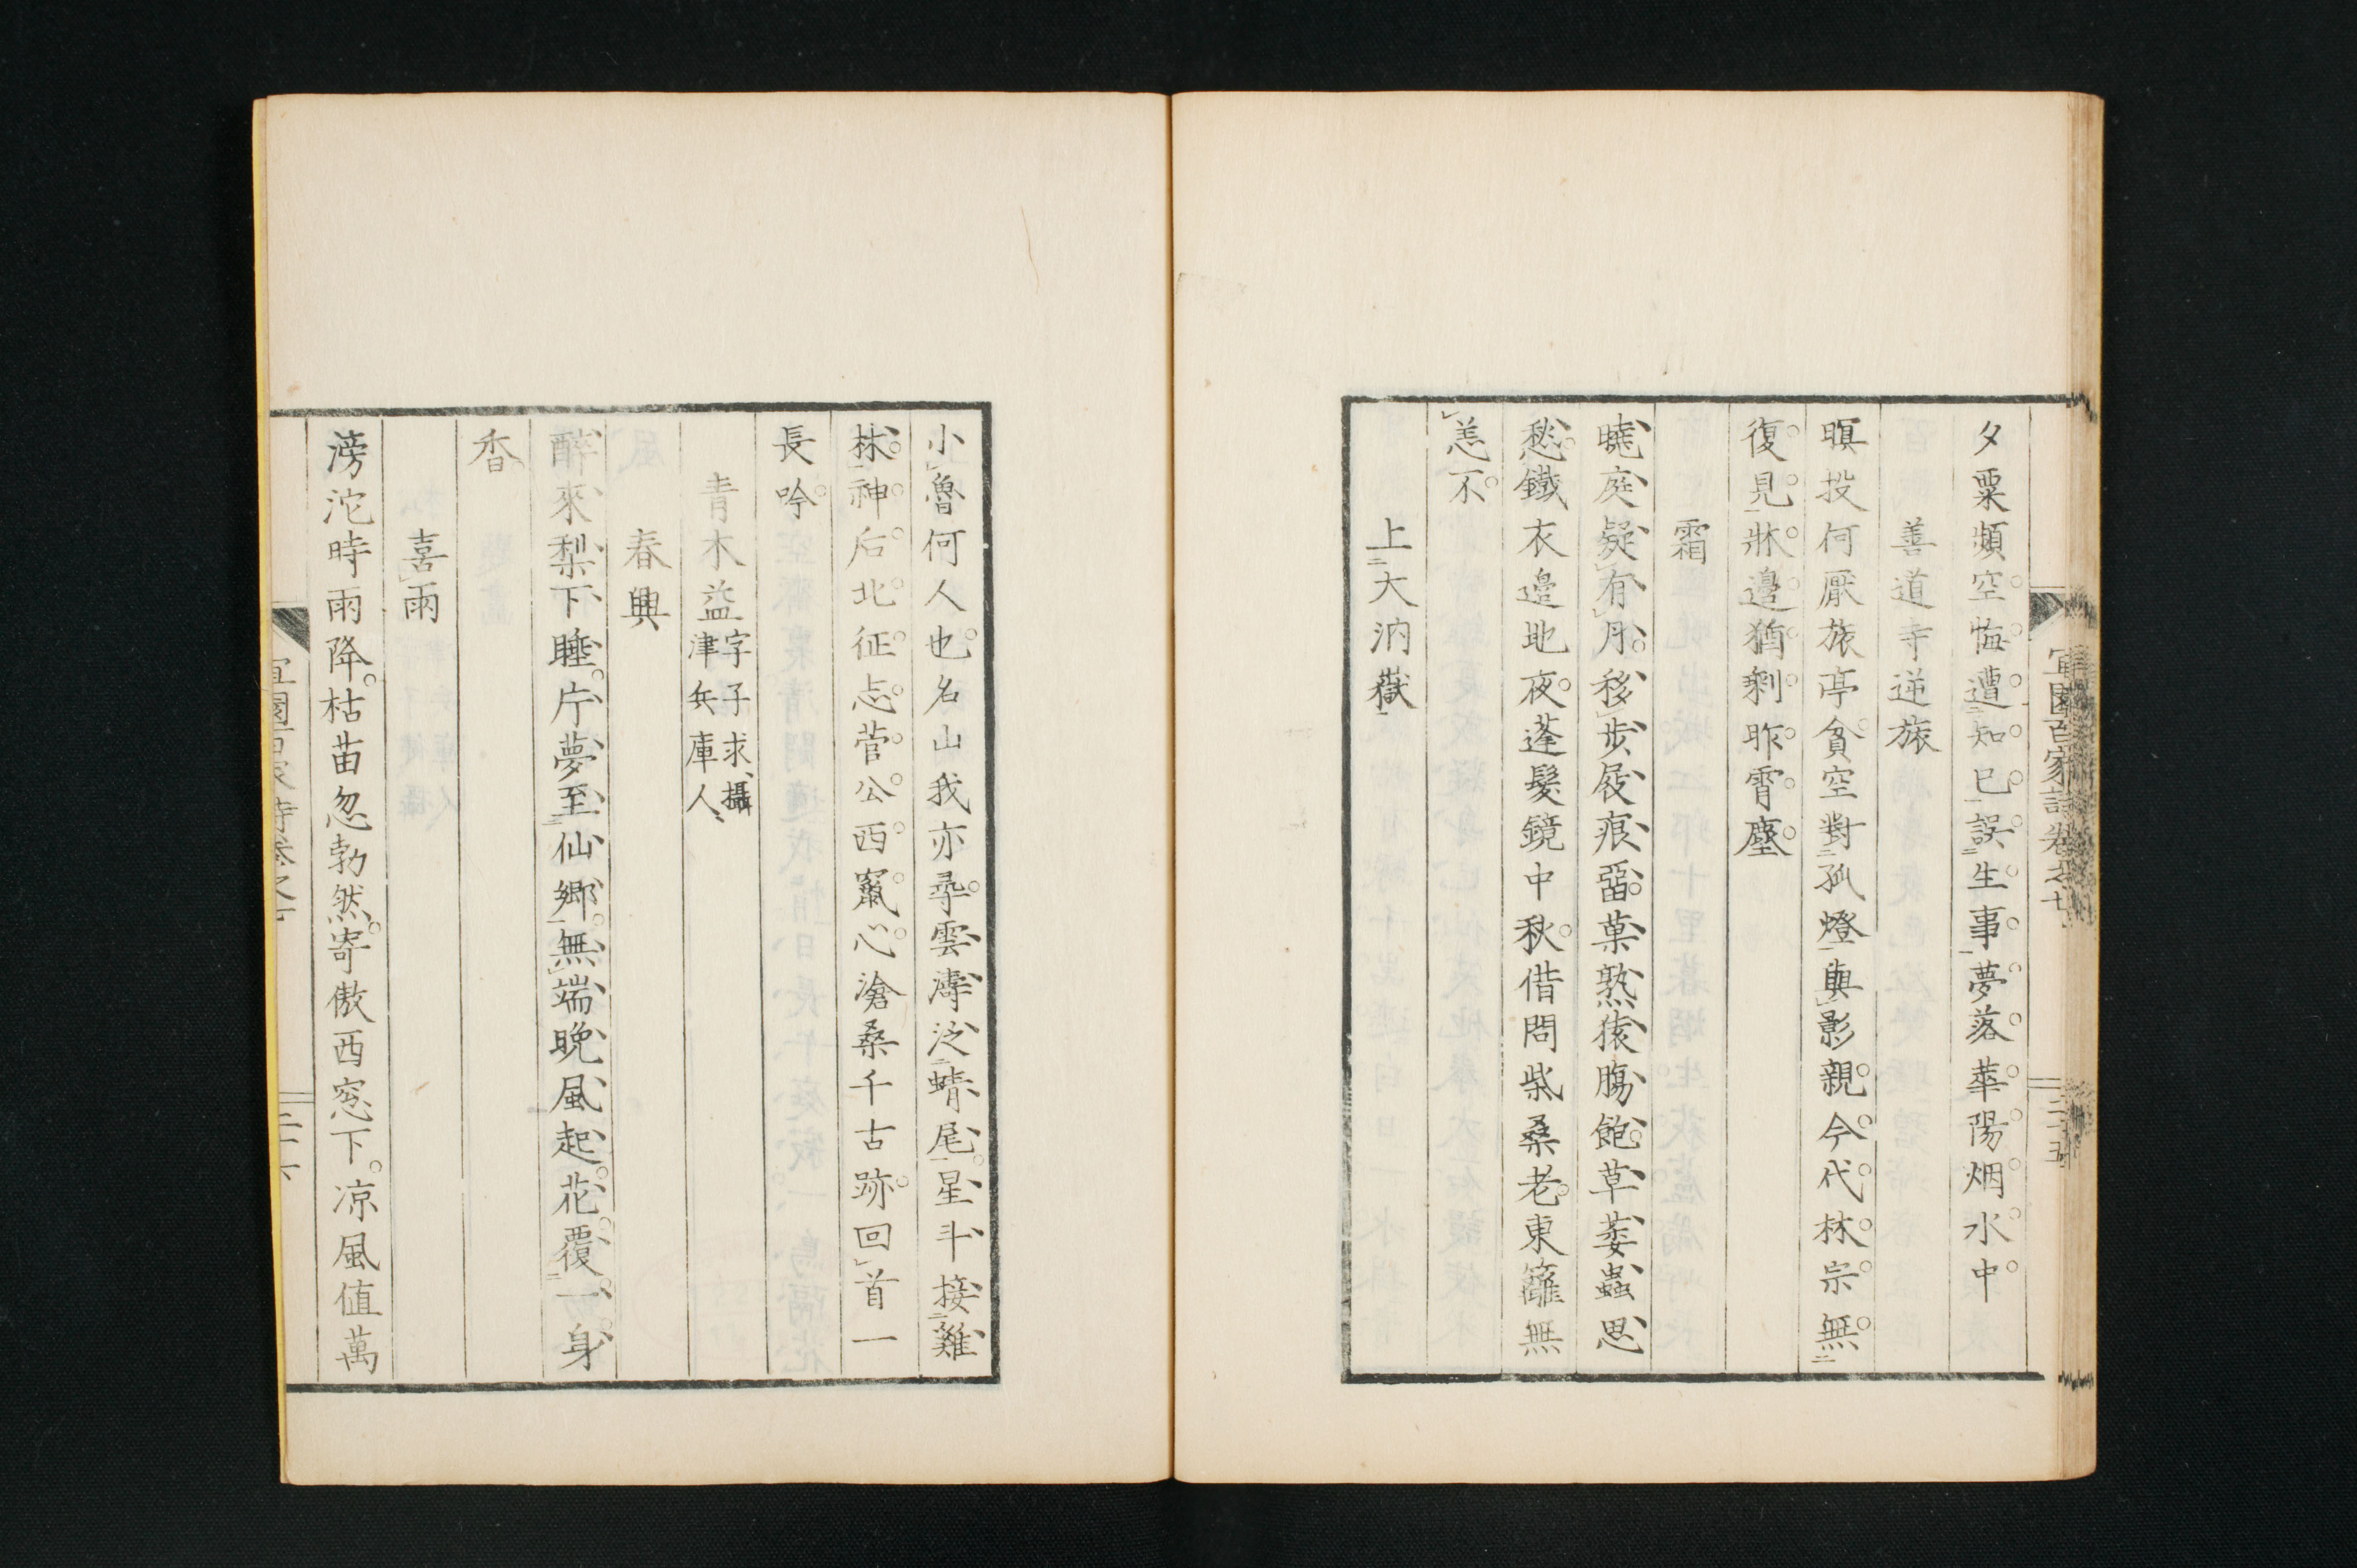 夕粟頻空悔遭知已誤生事夢落華陽烟水中
善道寺逆旅
暝投何厭旅亭貧空對孤燈與影親今代林宗無
復見牀邊猶剩昨霄塵
霜
曉庭疑有月移步屐痕留菓熟猿腸飽草萎蟲思
愁鐵衣邊地夜蓬髮鏡中秋借問柴桑老東籬無
恙不
上大汭嶽
宜園百家詩卷之七
二十五
小魯何人也名山我亦尋雲濤泛蜻尾星斗接雞
林神后北征志菅公西竄心滄桑千古跡回首一
長吟
青木益字子求攝
津兵庫人
春興
醉來梨下睡片夢至仙鄉無端晚風起花覆一身
香
喜雨
滂沱時雨降枯苗忽勃然寄傲西窓下凉風値萬